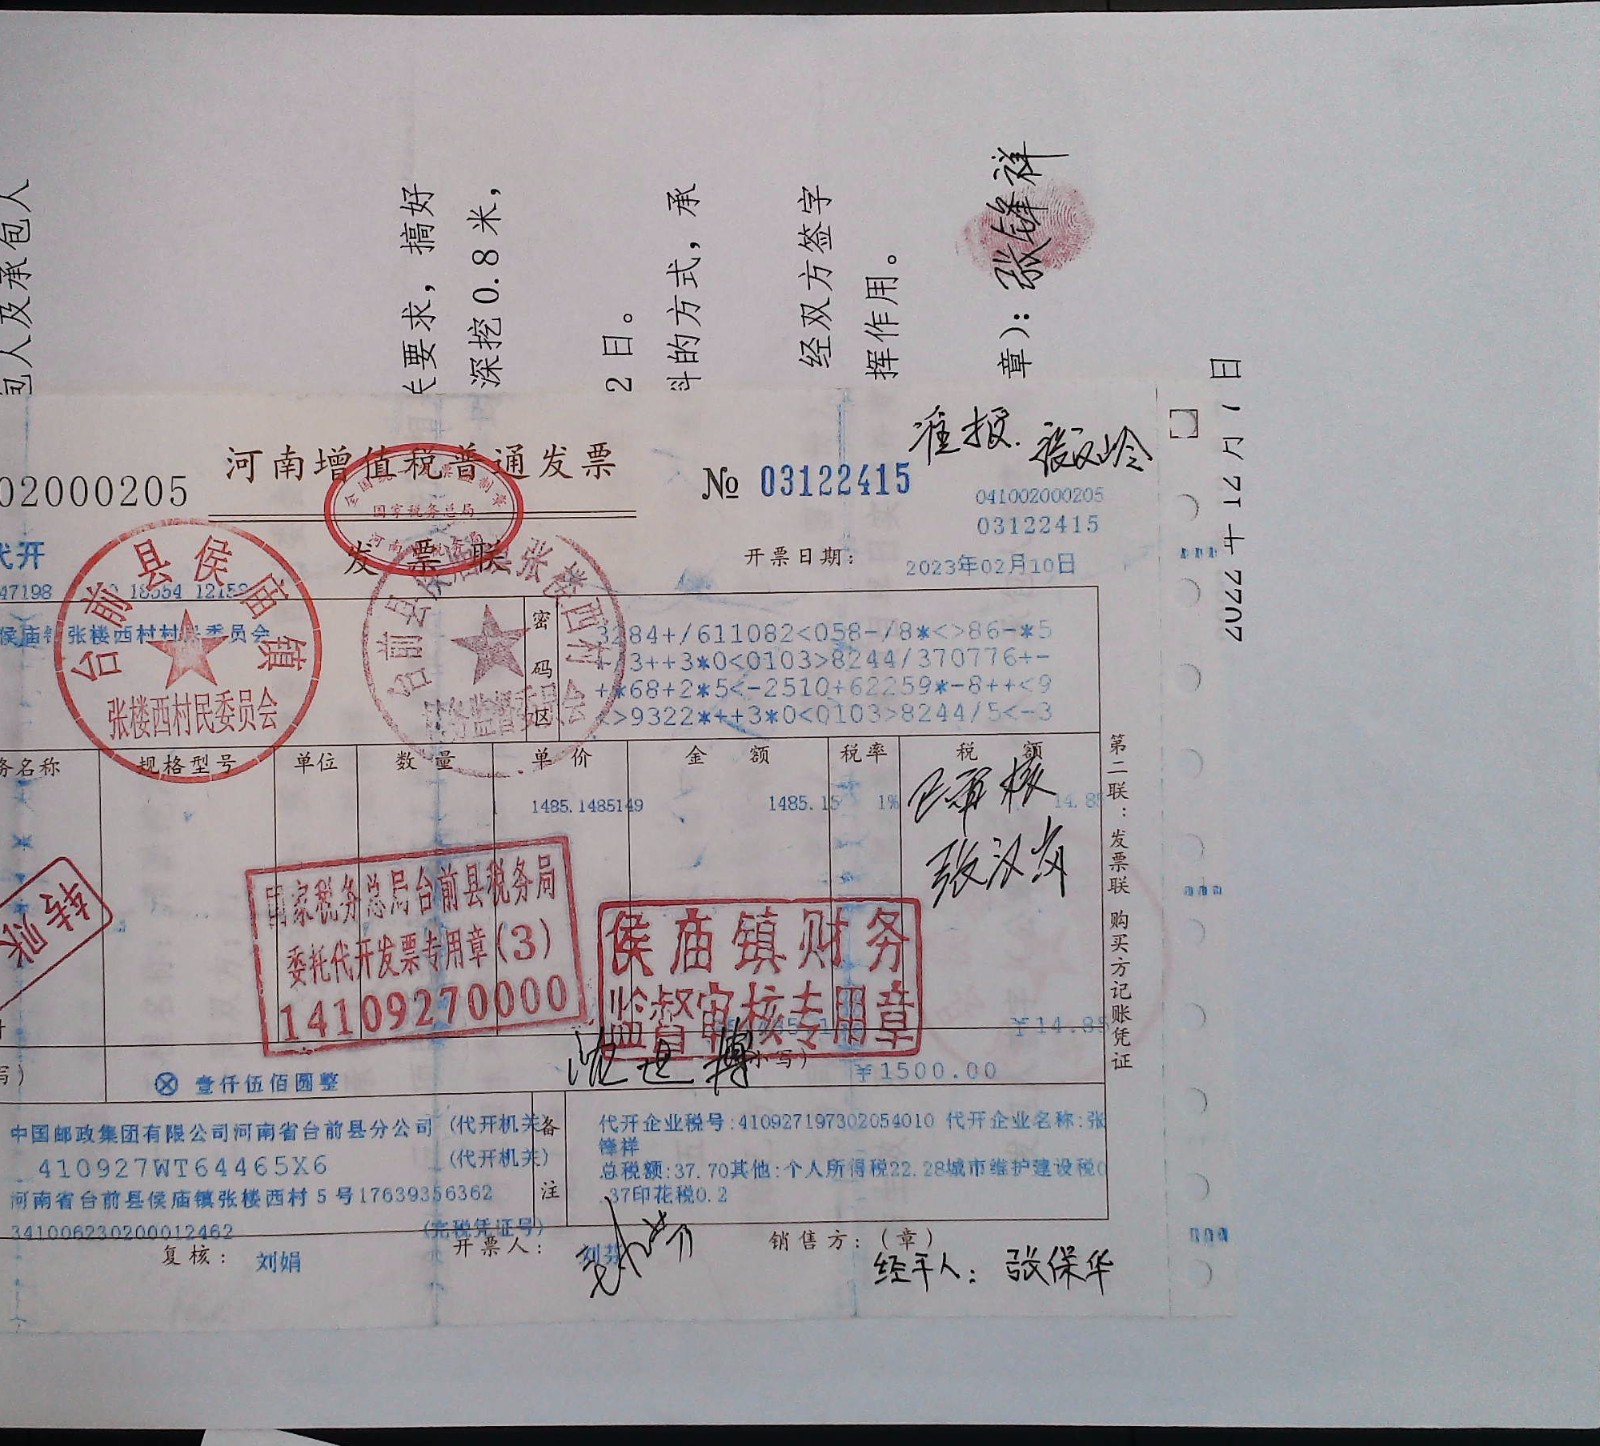 包人及承包人
要求，搞好
深挖0.8米，
2日。
的方式，承
经双方签字
挥作用。
章）：张锋祥
2022年12月1日
准报.
02000205
河南增值税普通发票
№ 03122415
041002000205
03122415
国家税务总局
发票联
代开
开票日期：
2023年02月10日
47198
侯庙镇张楼西村村民委员会
台前县侯庙镇
张楼西村民委员会
台前县侯庙镇张楼西村
村务监督委员会
密码区
3284+/611082<058-/8*<>86-*5
+/3++3*0<0103>8244/370776+-
+*68+2*5<-2510+62259*-8++<9
<>9322*++3*0<0103>8244/5<-3
务名称
规格型号
单位
数量
单价
金额
税率
税额
1485.1485149
1485.15
1%
14.85
已审核
转账
国家税务总局台前县税务局
委托代开发票专用章(3)
14109270000
侯庙镇财务
监督审核专用章
￥14.85
写）
壹仟伍佰圆整
（小写）
￥1500.00
中国邮政集团有限公司河南省台前县分公司 (代开机关)
410927WT64465X6 (代开机关)
河南省台前县侯庙镇张楼西村5号17639356362
341006230200012462 (完税凭证号)
备注
代开企业税号:410927197302054010 代开企业名称:张
锋祥
总税额:37.70其他:个人所得税22.28城市维护建设税0
.37印花税0.2
复核：
刘娟
开票人：
刘芬
销售方：（章）
经手人：张保华
第二联：发票联 购买方记账凭证